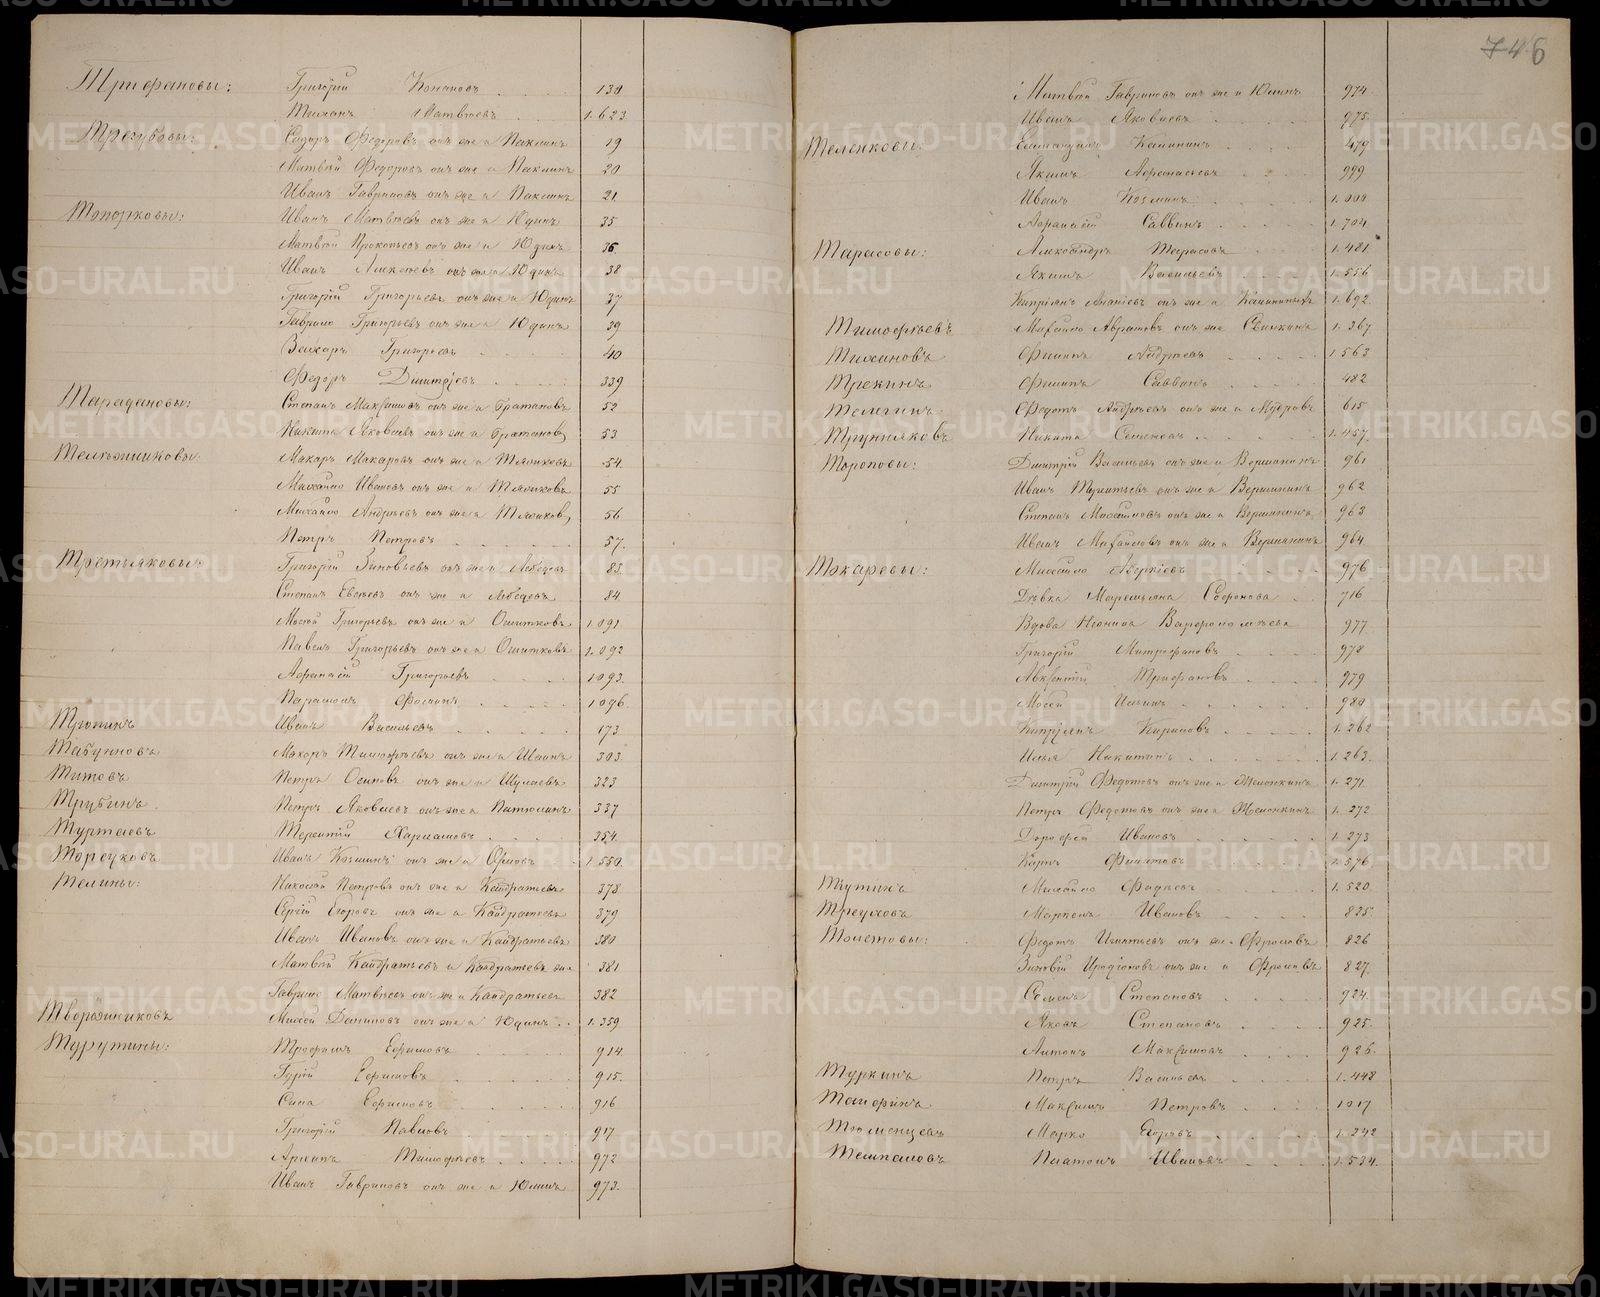 746
Трифановы: Григорій Конановъ 130
Тихонъ Матвѣевъ 1.623
Трегубовы: Сидоръ Федоровъ онъ же и Паклинъ 19
Матвѣй Федоровъ онъ же и Паклинъ 20
Иванъ Гавриловъ онъ же и Паклинъ 21
Топорковы: Иванъ Матвѣевъ онъ же и Юдинъ 35
Матвѣй Прокопьевъ онъ же и Юдинъ 36
Иванъ Алексѣевъ онъ же и Юдинъ 38
Григорій Григорьевъ онъ же и Юдинъ 37
Гаврило Григорьевъ онъ же и Юдинъ 39
Захаръ Григорьевъ 40
Федоръ Дмитріевъ 339
Таракановы: Степанъ Максимовъ онъ же и 52
Никита Яковлевъ онъ же и 53
Макаръ Макаровъ онъ же и 54
Михайло Ивановъ онъ же и 55
Михайло Андреевъ онъ же и 56
Петръ Петровъ 57
Третьяковы: Григорій Зиновьевъ онъ же и Лебедевъ 83
Степанъ Евсѣевъ онъ же и Лебедевъ 84
Моисей Григорьевъ онъ же и 1.091
Павелъ Григорьевъ онъ же и 1.092
Афанасій Григорьевъ 1093
Парамонъ Фокинъ 1096
Трютинъ Иванъ Васильевъ 173
Макаръ Тимофѣевъ онъ же и 303
Титовъ Петръ Осиповъ онъ же и Шулаевъ 323
Трубинъ Петръ Яковлевъ онъ же и 337
Терентій Харламовъ 354
Иванъ Козминъ онъ же и Орловъ 1.550
Телины: Николай Петровъ онъ же и Кондратьевъ 378
Сергій Егоровъ онъ же и Кондратьевъ 379
Иванъ Ивановъ онъ же и Кондратьевъ 380
Матвѣй Кондратьевъ и Кондратьевъ же 381
Гаврило Матвѣевъ онъ же и Кондратьевъ 382
Моисей Даниловъ онъ же и Юдинъ 1.359
Турутины: Трофимъ Ефимовъ 914
Гурій Ефимовъ 915
Сила Ефимовъ 916
Григорій Павловъ 917
Архипъ Тимофѣевъ 972
Иванъ Гавриловъ онъ же и Юминъ 973
Матвѣй Гавриловъ онъ же и Юминъ 974
Иванъ Яковлевъ 975
Теленковы: Калининъ 479
Якимъ Афанасьевъ 999
Иванъ Козминъ 1.000
Афанасій Саввинъ 1.704
Тарасовы: Александръ Тарасовъ 1.481
Якимъ Васильевъ 1.556
Кипріянъ Ананіевъ онъ же и 1.692
Тимофѣевъ Михайло Абрамовъ онъ же 1.367
Тихановъ Филипъ Андреевъ 1.563
Трекинъ Филипъ Саввинъ 482
Телегинъ Федотъ Андреевъ онъ же и 615
Трутняковъ Никита Семеновъ 1.457
Тороповы: Дмитрій Васильевъ онъ же и Вершининъ 961
Иванъ Терентьевъ онъ же и Вершининъ 962
Степанъ Михайловъ онъ же и Вершининъ 963
Иванъ Михайловъ онъ же и Вершининъ 964
Токаревы: Михайло Аверкіевъ 976
Дѣвка Маремьяна Софонова 716
Вдова Неонила Варфоломѣева 977
Григорій Митрофановъ 978
Авксентій Трифановъ 979
Мосей Ильинъ 980
Кипріянъ Кириловъ 1.262
Илья Никитинъ 1.263
Дмитрій Федотовъ онъ же и 1.271
Петръ Федотовъ онъ же и 1.272
Дорофей Ивановъ 1.273
Карпъ Филатовъ 1.576
Тутинъ Михайло Фадѣевъ 1.520
Треуховъ Маркелъ Ивановъ 835
Толстовы: Федотъ Игнатьевъ онъ же Фроловъ 826
Зиновій Иродіоновъ онъ же и Фроловъ 827
Семенъ Степановъ 924
Яковъ Степановъ 925
Антонъ Максимовъ 926
Туркинъ Петръ Васильевъ 1.448
Максимъ Петровъ 1017
Тюменцевъ Марко Егоровъ 1.242
Платонъ Ивановъ 1.534
METRIKI.GASO-URAL.RU